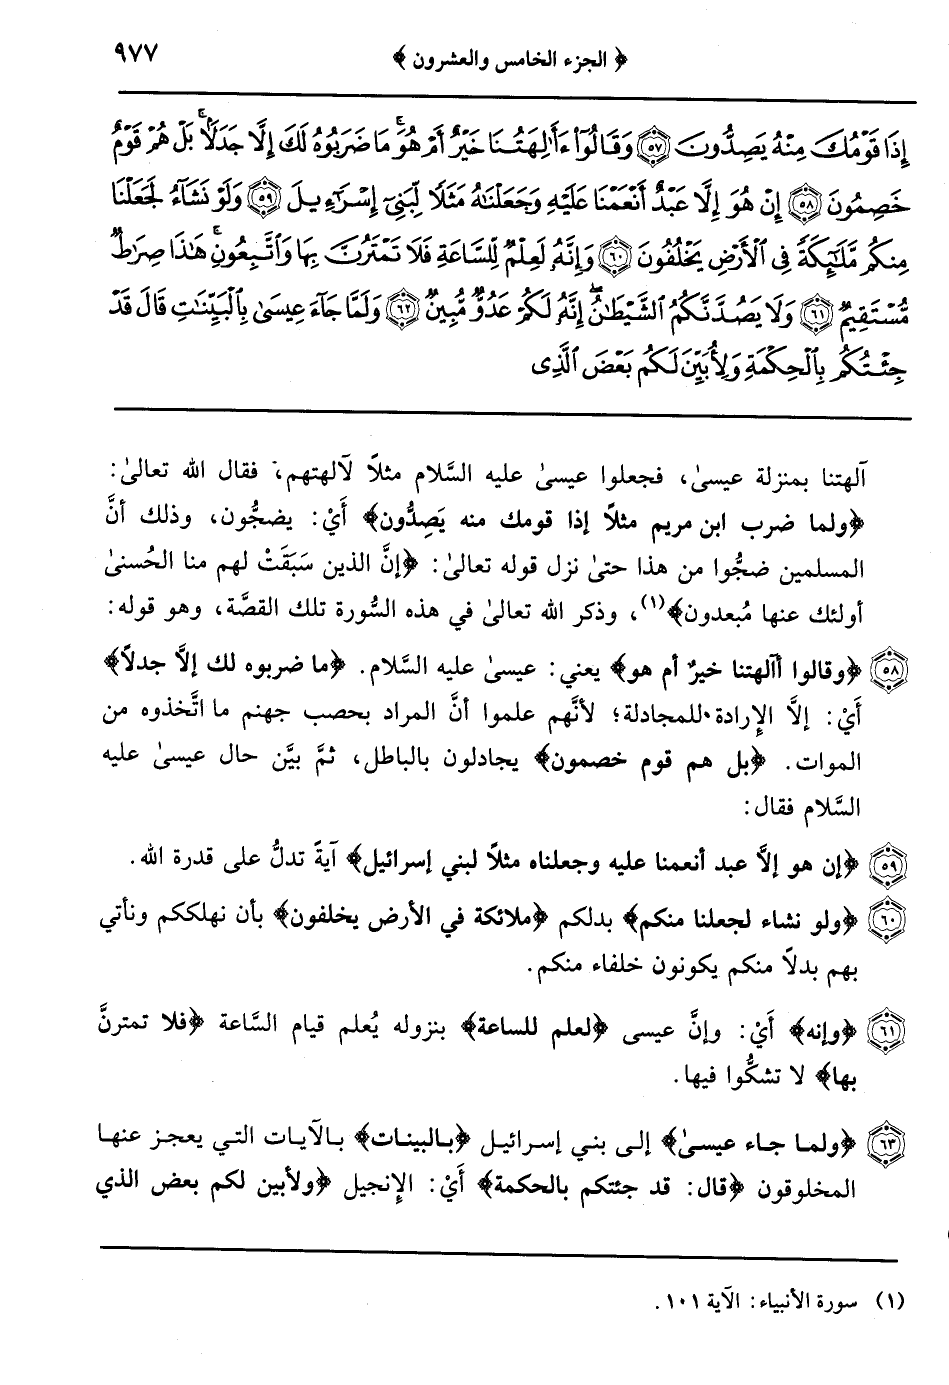 ﴿ الجزء الخامس والعشرون ﴾ ٩٧٧
إِذَا قَوْمُكَ مِنْهُ يَصِدُّونَ ٥٧ وَقَالُوٓا۟ ءَأَٰلِهَتُنَا خَيْرٌ أَمْ هُوَ ۚ مَا ضَرَبُوهُ لَكَ إِلَّا جَدَلًۢا ۚ بَلْ هُمْ قَوْمٌ
خَصِمُونَ ٥٨ إِنْ هُوَ إِلَّا عَبْدٌ أَنْعَمْنَا عَلَيْهِ وَجَعَلْنَٰهُ مَثَلًا لِّبَنِىٓ إِسْرَٰٓءِيلَ ٥٩ وَلَوْ نَشَآءُ لَجَعَلْنَا
مِنكُم مَّلَٰٓئِكَةً فِى ٱلْأَرْضِ يَخْلُفُونَ ٦٠ وَإِنَّهُۥ لَعِلْمٌ لِّلسَّاعَةِ فَلَا تَمْتَرُنَّ بِهَا وَٱتَّبِعُونِ ۚ هَٰذَا صِرَٰطٌ
مُّسْتَقِيمٌ ٦١ وَلَا يَصُدَّنَّكُمُ ٱلشَّيْطَٰنُ ۖ إِنَّهُۥ لَكُمْ عَدُوٌّ مُّبِينٌ ٦٢ وَلَمَّا جَآءَ عِيسَىٰ بِٱلْبَيِّنَٰتِ قَالَ قَدْ
جِئْتُكُم بِٱلْحِكْمَةِ وَلِأُبَيِّنَ لَكُم بَعْضَ ٱلَّذِى
آلهتنا بمنزلة عيسىٰ، فجعلوا عيسىٰ عليه السَّلام مثلاً لآلهتهم، فقال الله تعالىٰ:
﴿ولما ضرب ابن مريم مثلاً إذا قومك منه يَصِدُّون﴾ أَيْ: يضجُّون، وذلك أنَّ
المسلمين ضجُّوا من هذا حتىٰ نزل قوله تعالىٰ: ﴿إنَّ الذين سَبَقَتْ لهم منا الحُسنىٰ
أولئك عنها مُبعدون﴾(١)، وذكر الله تعالىٰ في هذه السُّورة تلك القصَّة، وهو قوله:
٥٨ ﴿وقالوا أآلهتنا خيرٌ أم هو﴾ يعني: عيسىٰ عليه السَّلام. ﴿ما ضربوه لك إلَّا جدلاً﴾
أَيْ: إلَّا الإِرادة للمجادلة؛ لأنَّهم علموا أنَّ المراد بحصب جهنم ما اتَّخذوه من
الموات. ﴿بل هم قوم خصمون﴾ يجادلون بالباطل، ثمَّ بيَّن حال عيسىٰ عليه
السَّلام فقال:
٥٩ ﴿إن هو إلَّا عبد أنعمنا عليه وجعلناه مثلاً لبني إسرائيل﴾ آيةً تدلُّ على قدرة الله.
٦٠ ﴿ولو نشاء لجعلنا منكم﴾ بدلكم ﴿ملائكة في الأرض يخلفون﴾ بأن نهلككم ونأتي
بهم بدلاً منكم يكونون خلفاء منكم.
٦١ ﴿وإنه﴾ أَيْ: وإنَّ عيسى ﴿لعلم للساعة﴾ بنزوله يُعلم قيام السَّاعة ﴿فلا تمترنَّ
بها﴾ لا تشكُّوا فيها.
٦٣ ﴿ولما جاء عيسىٰ﴾ إلى بني إسرائيل ﴿بالبينات﴾ بالآيات التي يعجز عنها
المخلوقون ﴿قال: قد جئتكم بالحكمة﴾ أَيْ: الإِنجيل ﴿ولأبين لكم بعض الذي
(١) سورة الأنبياء: الآية ١٠١.